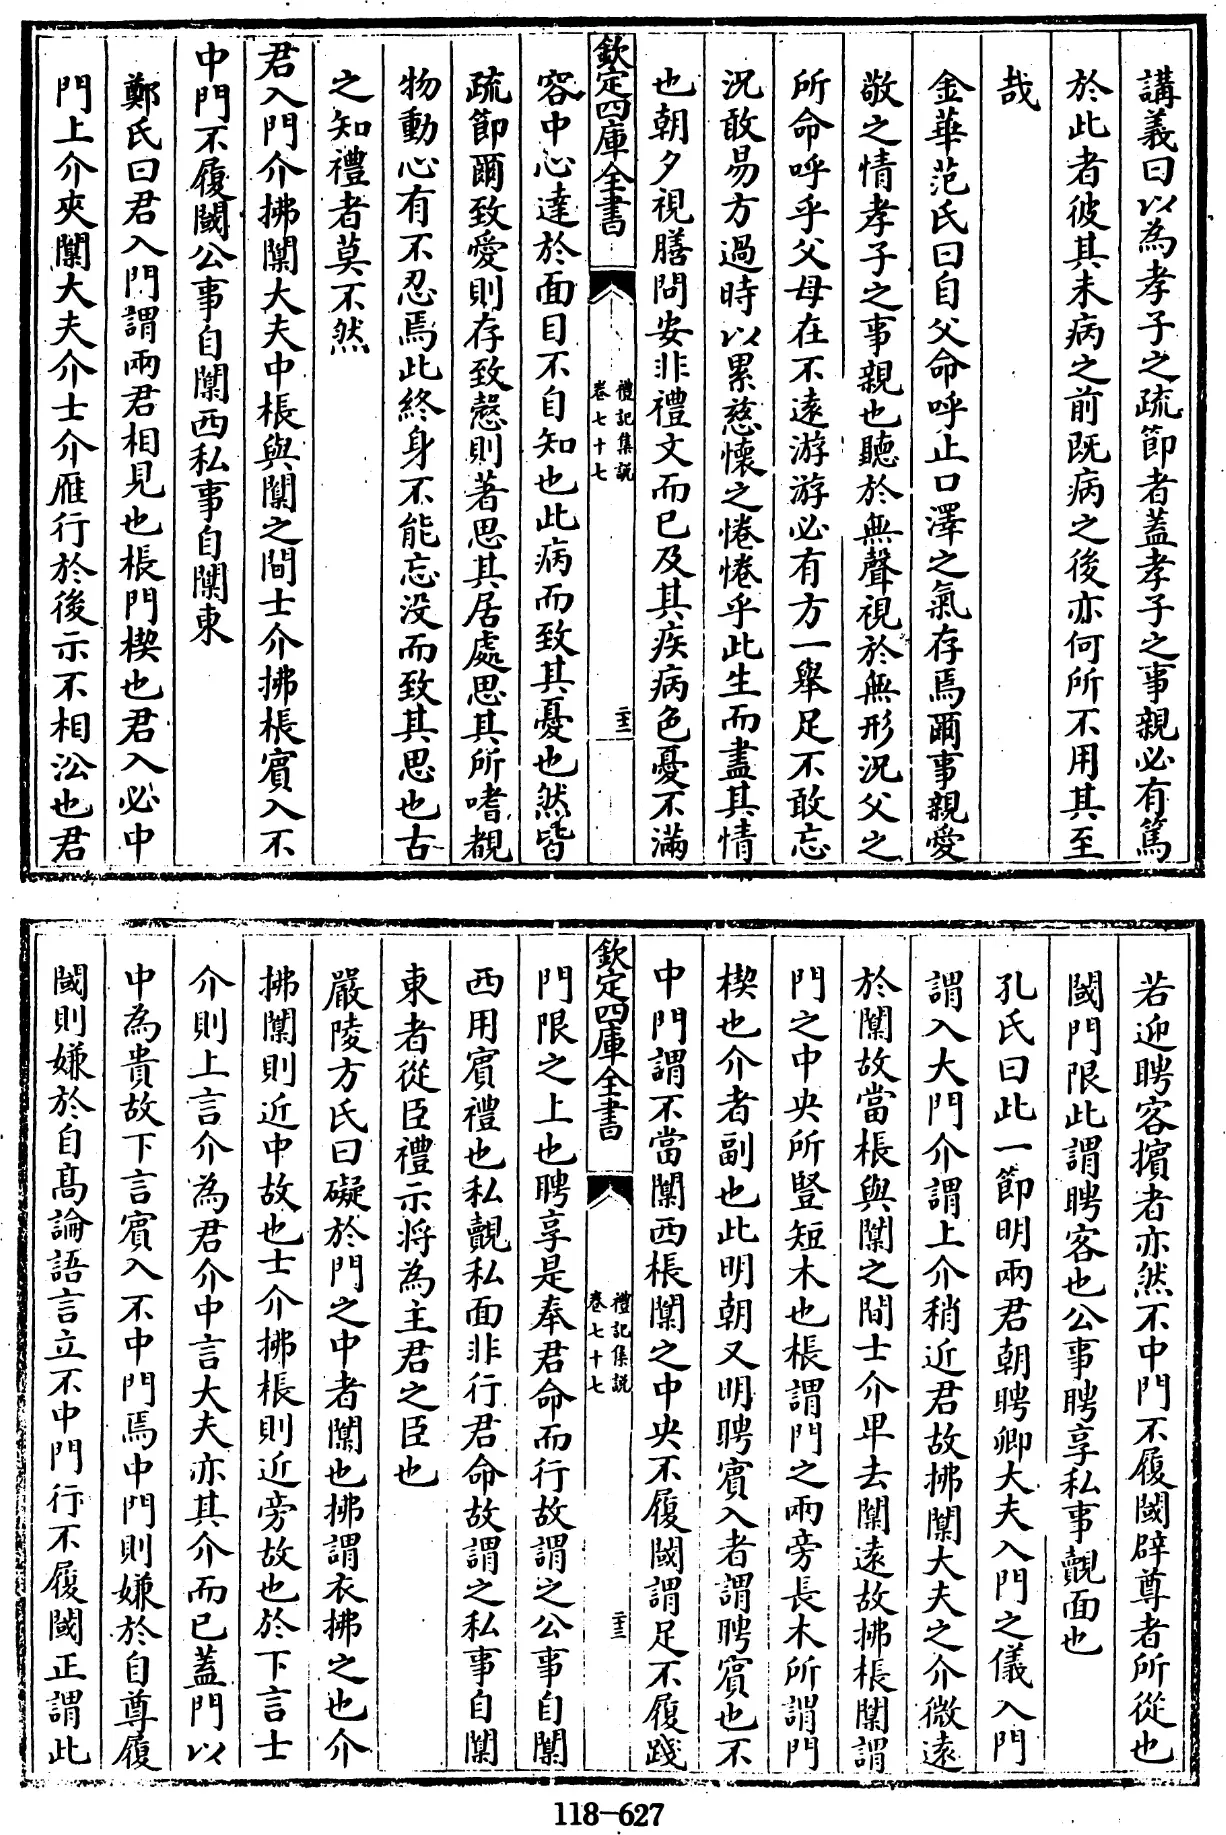 講義曰以為孝子之疏節者蓋孝子之事親必有篤
於此者彼其未病之前既病之後亦何所不用其至
哉
金華范氏曰自父命呼止口澤之氣存焉爾事親愛
敬之情孝子之事親也聽於無聲視於無形況父之
所命呼乎父母在不遠游游必有方一舉足不敢忘
況敢易方過時以累慈懷之惓惓乎此生而盡其情
也朝夕視膳問安非禮文而已及其疾病色憂不滿
欽定四庫全書
禮記集説
卷七十七
二十三
容中心達於面目不自知也此病而致其憂也然皆
疏節爾致愛則存致慤則著思其居處思其所嗜覩
物動心有不忍焉此終身不能忘没而致其思也古
之知禮者莫不然
君入門介拂闑大夫中棖與闑之間士介拂棖賓入不
中門不履閾公事自闑西私事自闑東
鄭氏曰君入門謂兩君相見也棖門楔也君入必中
門上介夾闑大夫介士介雁行於後示不相沿也君
若迎聘客擯者亦然不中門不履閾辟尊者所從也
閾門限此謂聘客也公事聘享私事覿面也
孔氏曰此一節明兩君朝聘卿大夫入門之儀入門
謂入大門介謂上介稍近君故拂闑大夫之介微遠
於闑故當棖與闑之間士介卑去闑遠故拂棖闑謂
門之中央所豎短木也棖謂門之兩旁長木所謂門
楔也介者副也此明朝又明聘賓入者謂聘賓也不
中門謂不當闑西棖闑之中央不履閾謂足不履踐
欽定四庫全書
禮記集説
卷七十七
二十三
門限之上也聘享是奉君命而行故謂之公事自闑
西用賓禮也私覿私面非行君命故謂之私事自闑
東者從臣禮示将為主君之臣也
嚴陵方氏曰礙於門之中者闑也拂謂衣拂之也介
拂闑則近中故也士介拂棖則近旁故也於下言士
介則上言介為君介中言大夫亦其介而已蓋門以
中為貴故下言賓入不中門焉中門則嫌於自尊履
閾則嫌於自高論語言立不中門行不履閾正謂此
118-627